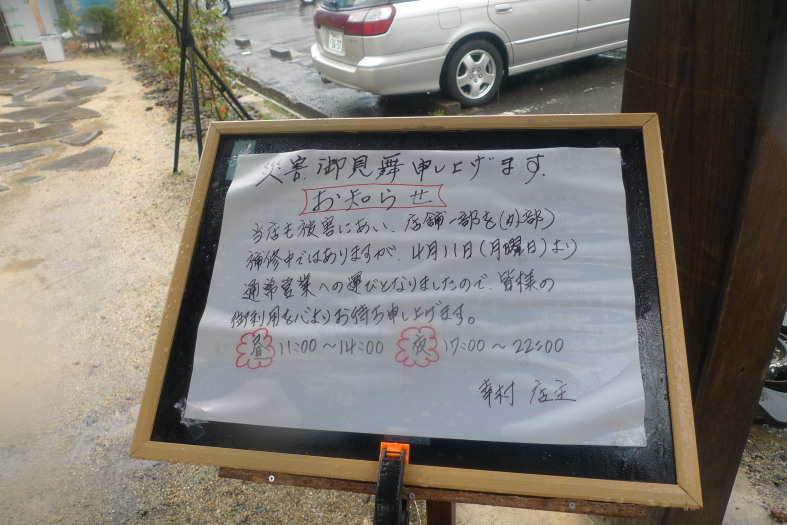 災害御見舞申し上げます.
お知らせ
当店も被害にあい、店舗一部を(外部)
補修中ではありますが、4月11日(月曜日)より
通常営業への運びとなりましたので、皆様の
御利用を心よりお待ち申し上げます。
昼 11:00～14:00 夜 17:00～22:00
幸村 店主